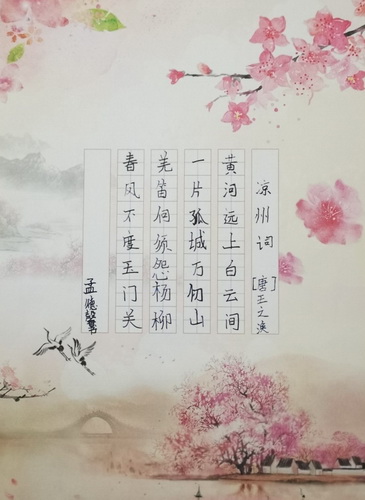 凉州词
[唐王之涣]
黄河远上白云间
一片孤城万仞山
羌笛何须怨杨柳
春风不度玉门关